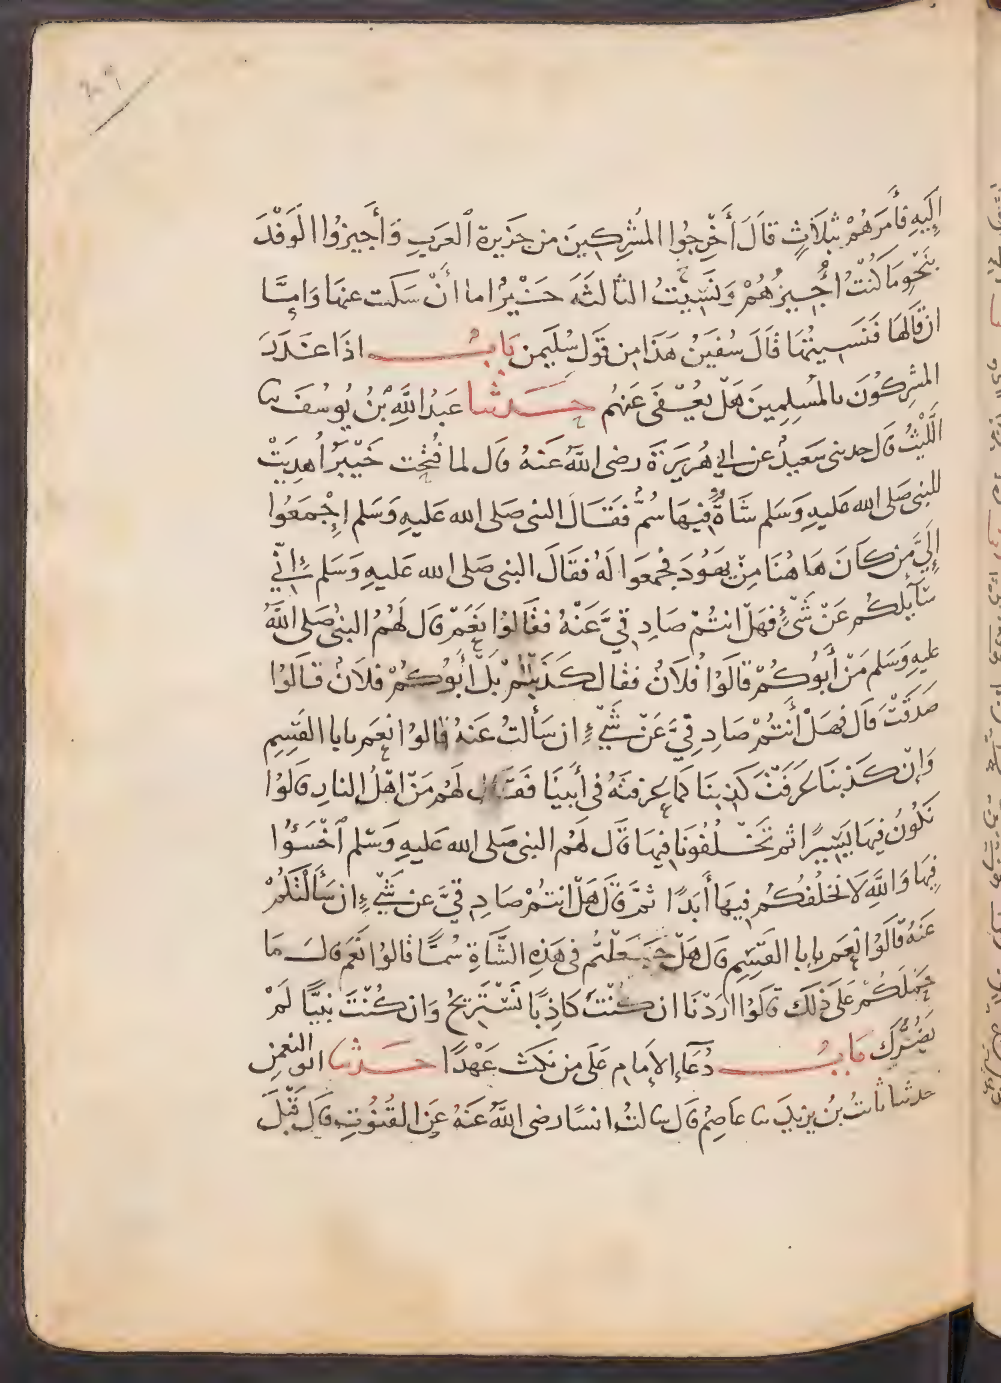 إِلَيْهِ فَأَمَرَهُمْ بِثَلَاثٍ قَالَ أَخْرِجُوا المُشْرِكِينَ من جَزِيرة العَرَبِ وَأَجِيزُوا الوَفْدَ
بِنَحْوِ مَا كُنْتُ أُجِيزُهُمْ وَنَسِيتُ الثالثَةَ خَيْرٌ اما أَنْ سَكَت عنهَا وَامَّا
ان قَالَهَا فَنَسِيتُهَا قَالَ سُفْيَنُ هَذَا مِن قَولِ سُلَيمن بَابُ اذَا غَدَرَ
المشرِكُونَ بالمُسْلِمِينَ هَلْ يُعْفَى عَنهُم حَدثنا عَبدُ اللَّهِ بْنُ يُوسُفَ نا
اللَّيْثُ قَال حدثنى سَعِيدٌ عن ابى هُرَيرَةَ رضى اللَّهُ عَنهُ قال لما فُتِحَت خَيْبَرُ أُهْدِيَتْ
للنبى صَلى الله عَليهِ وَسَلم شَاةٌ فِيهَا سُمٌّ فَقَالَ النبى صَلى الله عَليهِ وَسَلم اِجْمَعُوا
إِلَيَّ مَن كَانَ هَا هُنَا مِنْ يَهُودَ فَجُمعوا لَهُ فَقَالَ النبى صَلى الله عَليهِ وَسَلم إِنِّي
سَآئِلكُم عَنْ شَيْءٍ فَهَلْ انتُمْ صَادِقِيَّ عَنْهُ فَقَالوُا نَعَمْ قَال لَهُمُ النبىُ صَلى اللَّهُ
عليهِ وَسَلم مَنْ أَبُوكُمْ قَالَوُا فُلَانٌ فقال كَذَبْتُمْ بَلْ أَبُوكُمْ فلانٌ قَالُوُا
صَدَقْتَ قَال فهَلْ أَنتُمْ صَادِقِيَّ عَنْ شَيْءٍ ان سَألتُ عَنهُ قالوُا نعَم يا با القَسِمِ
وَإِنْ كَذبنَا عَرَفْتَ كَذِبنَا كما عَرفتَهُ فى أَبِينَا فَقَال لَهُم مَنْ اهْلُ النار قَالوُا
نَكُونُ فِيهَا يَسِيرًا ثم تَخْلُفُونَا فِيهَا قَال لَهم النبى صَلى الله عَليهِ وَسَلم اخْسَؤُا
فِيهَا وَاللَّهِ لَا نخلُفكُم فِيهَا أَبَدًا ثمَّ قَالَ هَلْ انتُمْ صَادِقيَّ عن شَيْءٍ ان سَأَلْتُكُمْ
عَنهُ قَالَوُا نعَم يا با القَسِمِ قَال هَلْ جَعَلتُم فى هَذِهِ الشَّاةِ سُمًّا قالوُا نَعَم قالَ مَا
حَمَلَكُمْ عَلَى ذَلك قَالَوُا ارَدْنَا ان كُنْتَ كَاذِبًا نَسْتَرِيحُ وَان كُنْتَ نبيًّا لَمْ
يَضُرَّك بَابُ دُعَآءِ الإمَامِ عَلَى مَن نَكَثَ عَهْدًا حَدثنا ابو النعمنِ
حدثنا ثابتُ بنُ يزيدَ نا عاصِمٌ قال سالتُ انسًا رضى اللَّهُ عَنهُ عَنِ القُنُوتِ قَالَ قَبْلَ